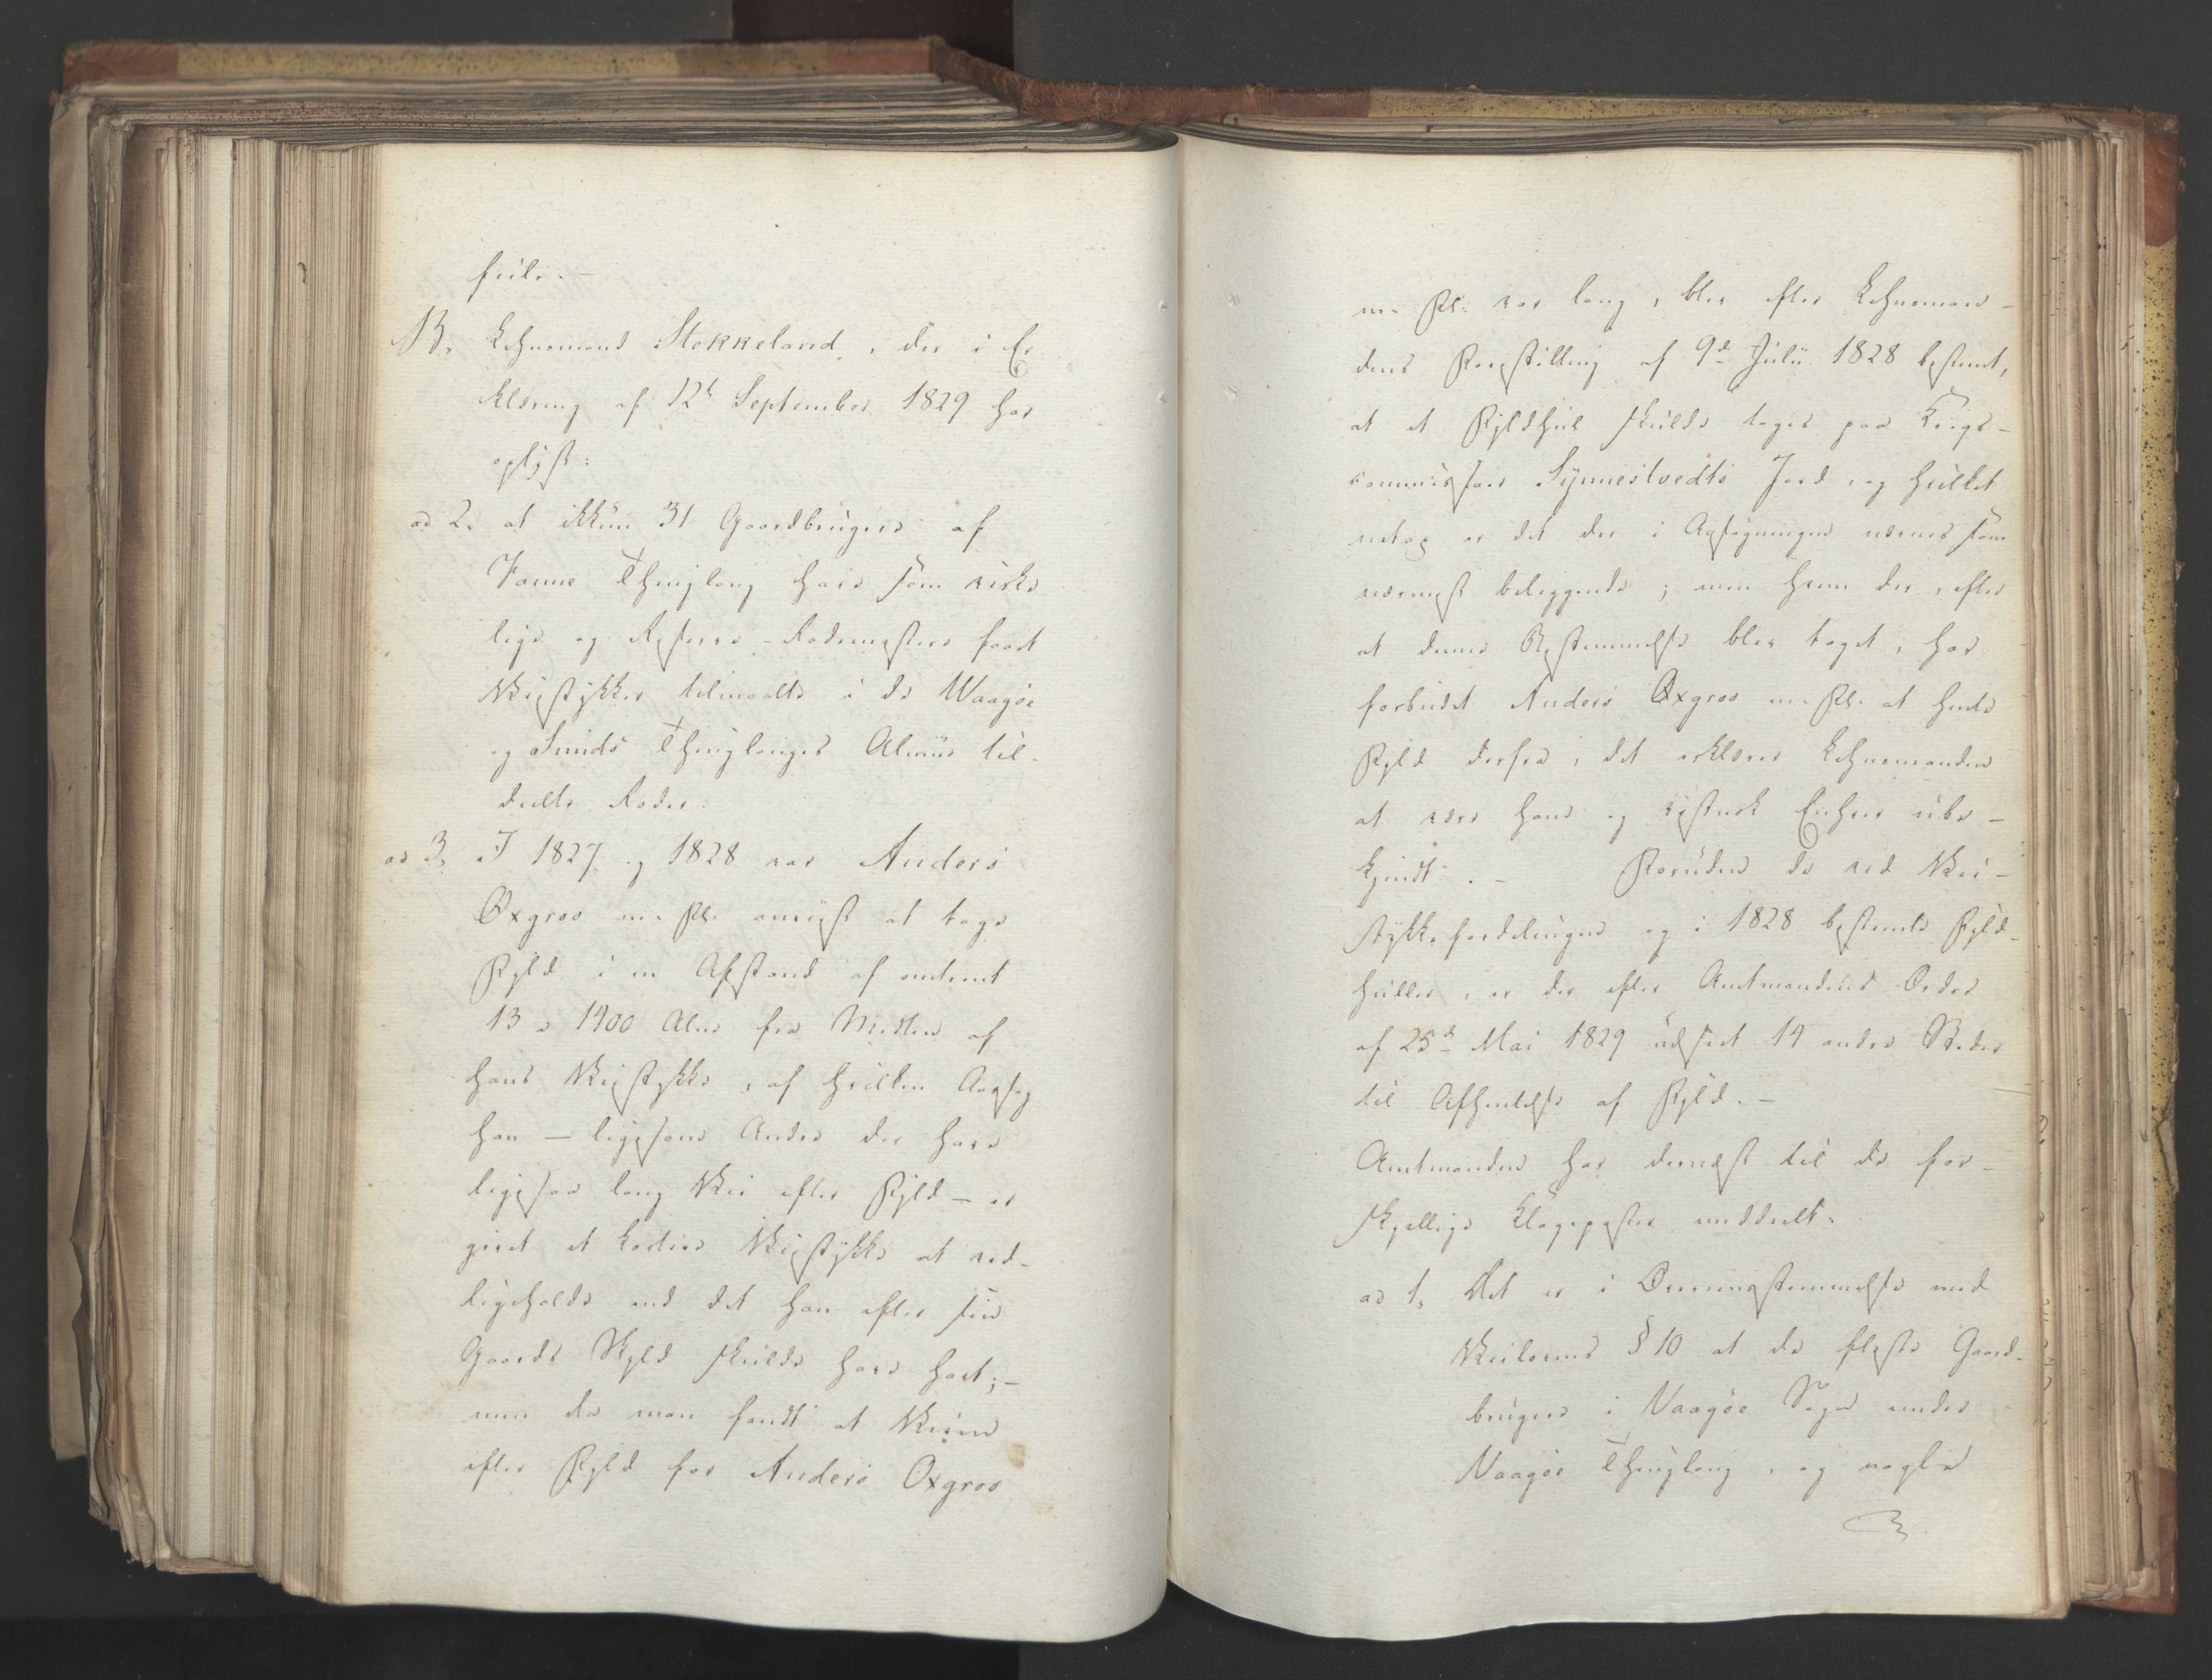 feile. –
B, Lehnsmand Stokkeland, der i Er-
klæring af 12te September 1829 har
oplyst:
ad 2, at ikkun 31 Gaardbrugere af
Vanne Thinglaug have som virke-
lige og Reserve-Rodemestere faaet
Veistykker tilmaalte i de Waagøe
og Sunds Thinglauges Almue til-
deelte Roder.
ad 3, I 1827 og 1828 var Anders
Oxgroo m. Fl. anviist at tage
Fyld i en Afstand af omtrent
13 a 1400 Alne fra Midten af
hans Veistykke, af hvilken Aarsag
han – ligesom Andre der have
ligesaa lang Vei efter Fyld – er
givet et kortere Veistykke at ved-
ligeholde end det han efter sin
Gaards Skyld skulde have havt; –
men da man fandt at Veien
efter Fyld for Anders Oxgroo
m. Fl. var lang, blev efter Lehnsman-
dens Forestilling af 9de Julii 1828 bestemt,
at et Fyldhul skulde tages paa Krigs-
commissair Synnestvedts Jord, og hvilket
netop er det der i Ansøgningen nævnes som
nærmest beliggende; men hvem der, efter
at denne Bestemmelse blev taget, har
forbudet Anders Oxgroo m. Fl. at hente
Fyld derfra, det erklærer Lehnsmanden
at være ham og vistnok Enhver ube-
kjendt. – Foruden de ved Vei-
stykkefordelingen og i 1828 bestemte Fyld-
huller, er der efter Amtmandens Ordre
af 25de Mai 1829 udseet 14 andre Steder
til Afhentelse af Fyld. –
Amtmanden har dernæst til de for-
skjellige Klageposter meddeelt:
ad 1, Det er i Overeensstemmelse med
Veilovens § 10 at de fleste Gaard-
brugere i Vaagøe Sogn under
Vaagøe Thinglaug, og nogle